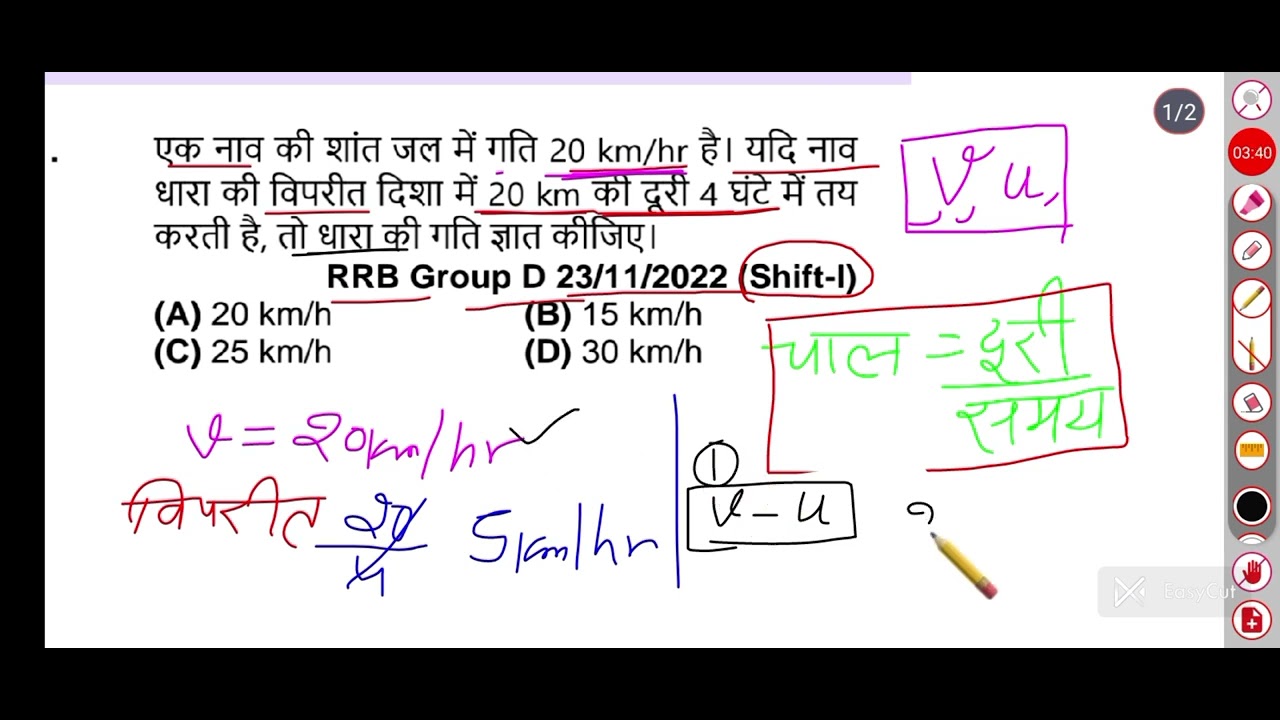 1/2
03:40
. एक नाव की शांत जल में गति 20 km/hr है। यदि नाव
धारा की विपरीत दिशा में 20 km की दूरी 4 घंटे में तय
करती है, तो धारा की गति ज्ञात कीजिए।
RRB Group D 23/11/2022 (Shift-I)
(A) 20 km/h (B) 15 km/h
(C) 25 km/h (D) 30 km/h
V u,
चाल = दूरी
समय
v = 20km/hr
विपरीत 20
4
5km/hr
1
v - u
EasyCut